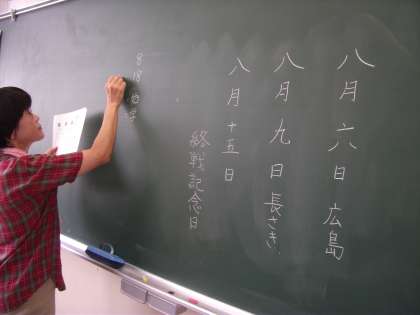 八月六日広島
八月九日長さき
八月十五日
終戦記念日